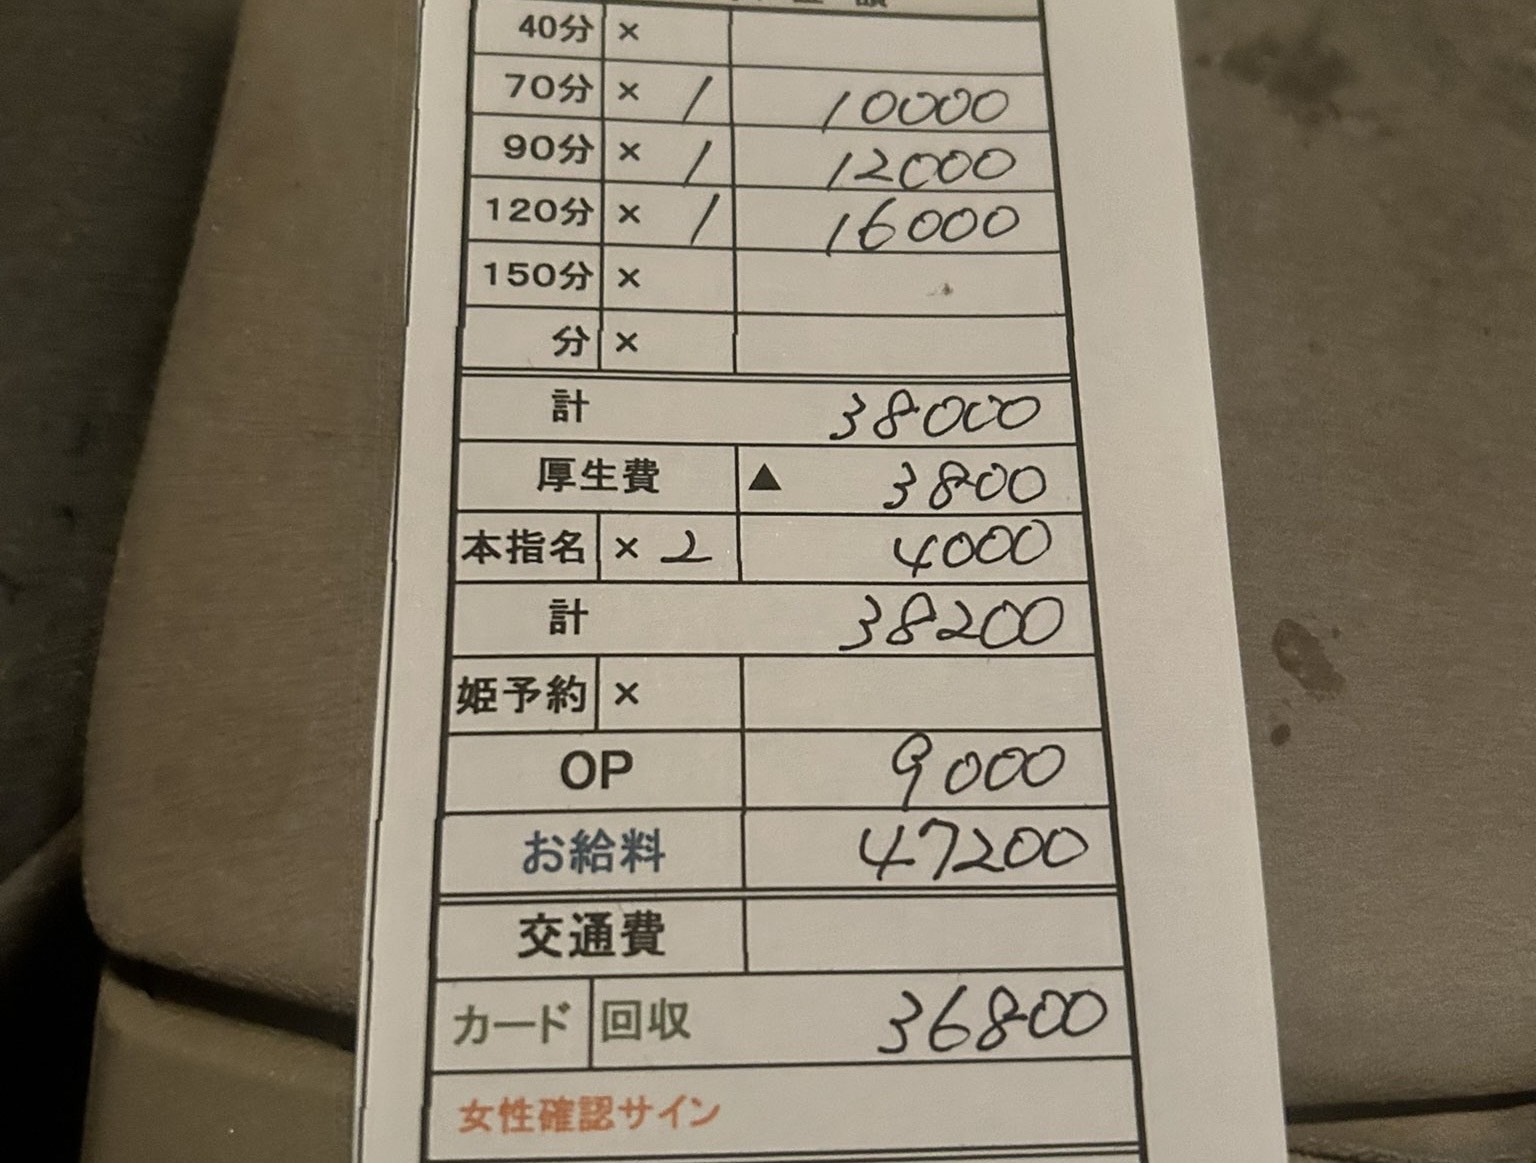 40分 ×
70分 × 1 10000
90分 × 1 12000
120分 × 1 16000
150分 ×
分 ×
計 38000
厚生費 ▲ 3800
本指名 × 2 4000
計 38200
姫予約 ×
OP 9000
お給料 47200
交通費
カード 回収 36800
女性確認サイン